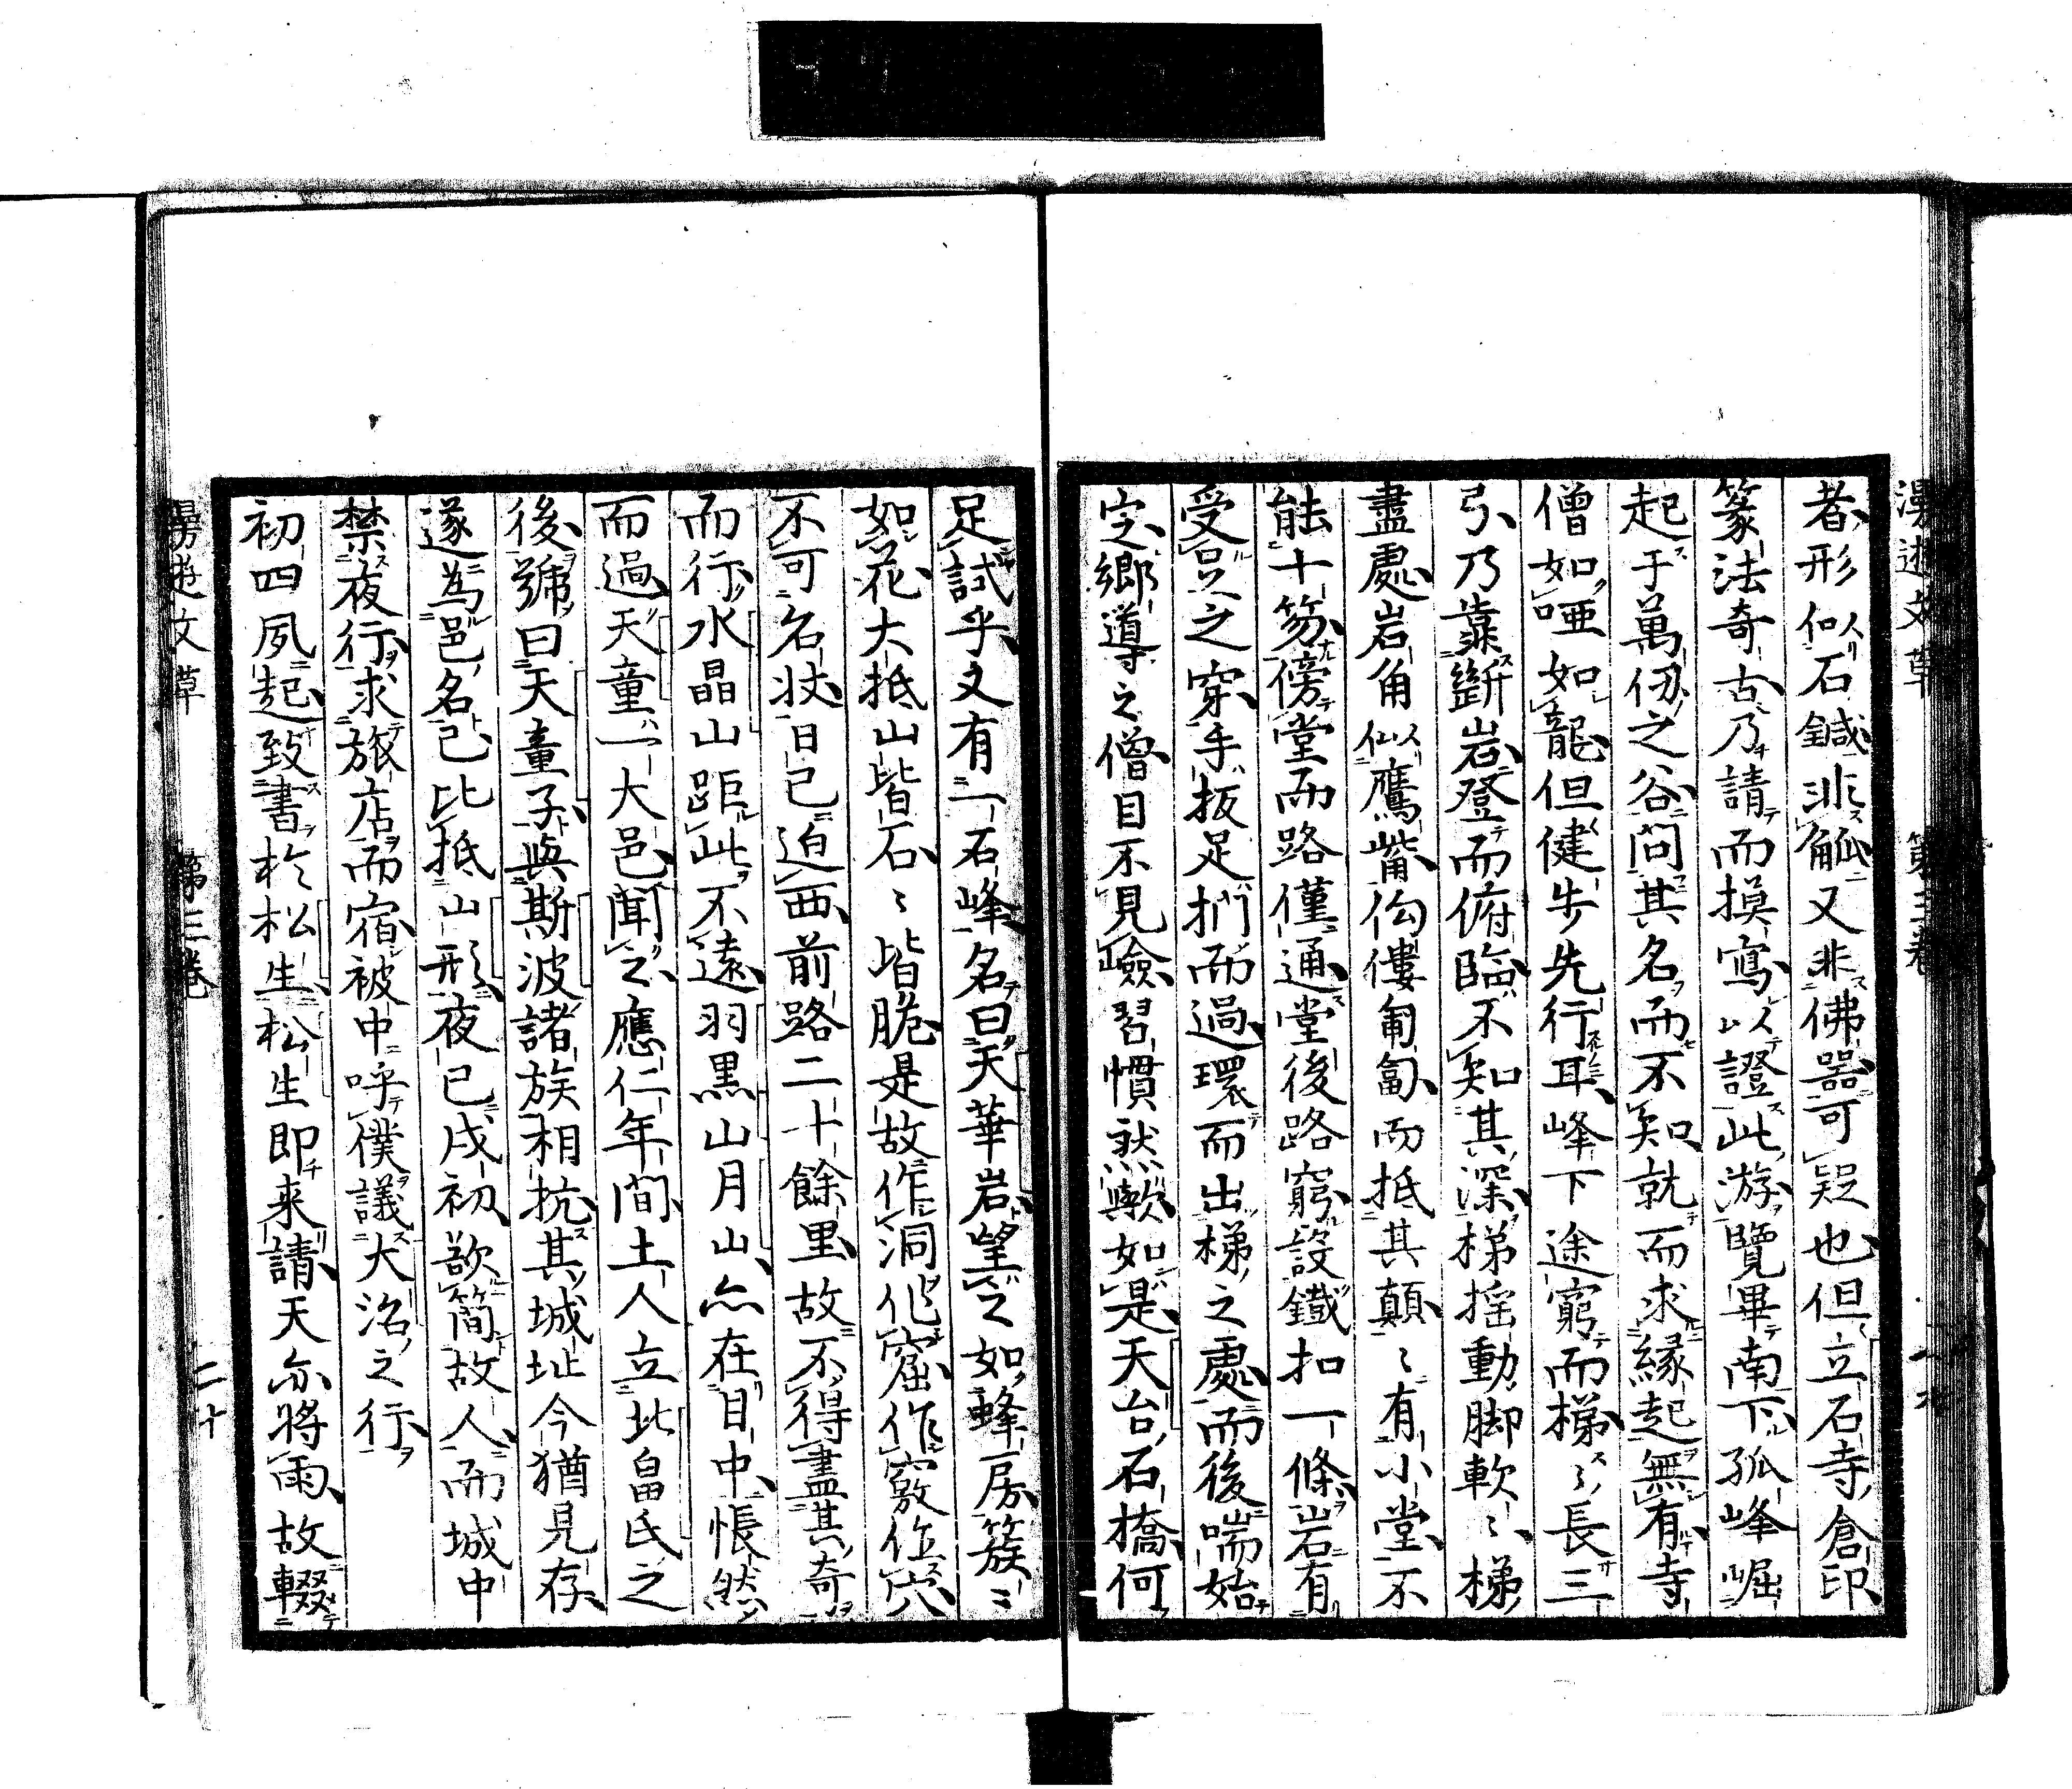 漫遊文草 第三卷 十九
者形似石鏚非觚又非佛器可疑也但立石寺倉印
篆法奇古乃請而摸寫以證此游覽畢南下孤峰崛
起于萬仭之谷問其名而不知就而求縁起無有寺
僧如唖如聾但健步先行耳峰下途窮而梯〻長三
引乃靠斷岩登而俯臨不知其深梯搖動脚軟〻梯
盡處岩角似鷹嘴佝僂匍匐而抵其顛〻有小堂不
能十笏傍堂而路僅通堂後路窮設鐵扣一條岩有
受豆之穿手扳足捫而過環而出梯之處而後喘始
定郷導之僧目不見險習慣然歟如是天台石橋何
足試乎又有一石峰名曰天華岩望之如蜂房簇〻
如花大抵山皆石〻皆脆是故作洞作窟作竅作穴
不可名狀日已迫西前路二十餘里故不得盡其奇
而行水晶山距此不遠羽黒山月山亦在目中悵然
而過天童一大邑聞之應仁年間土人立北畠氏之
後號曰天童子與斯波諸族相抗其城址今猶見存
遂為邑名已比抵山形夜已戌初欲簡故人而城中
禁夜行求旅店而宿被中呼僕議大沼之行
初四夙起致書於松生松生即来請天亦將雨故輟
漫遊文草 第三卷 二十